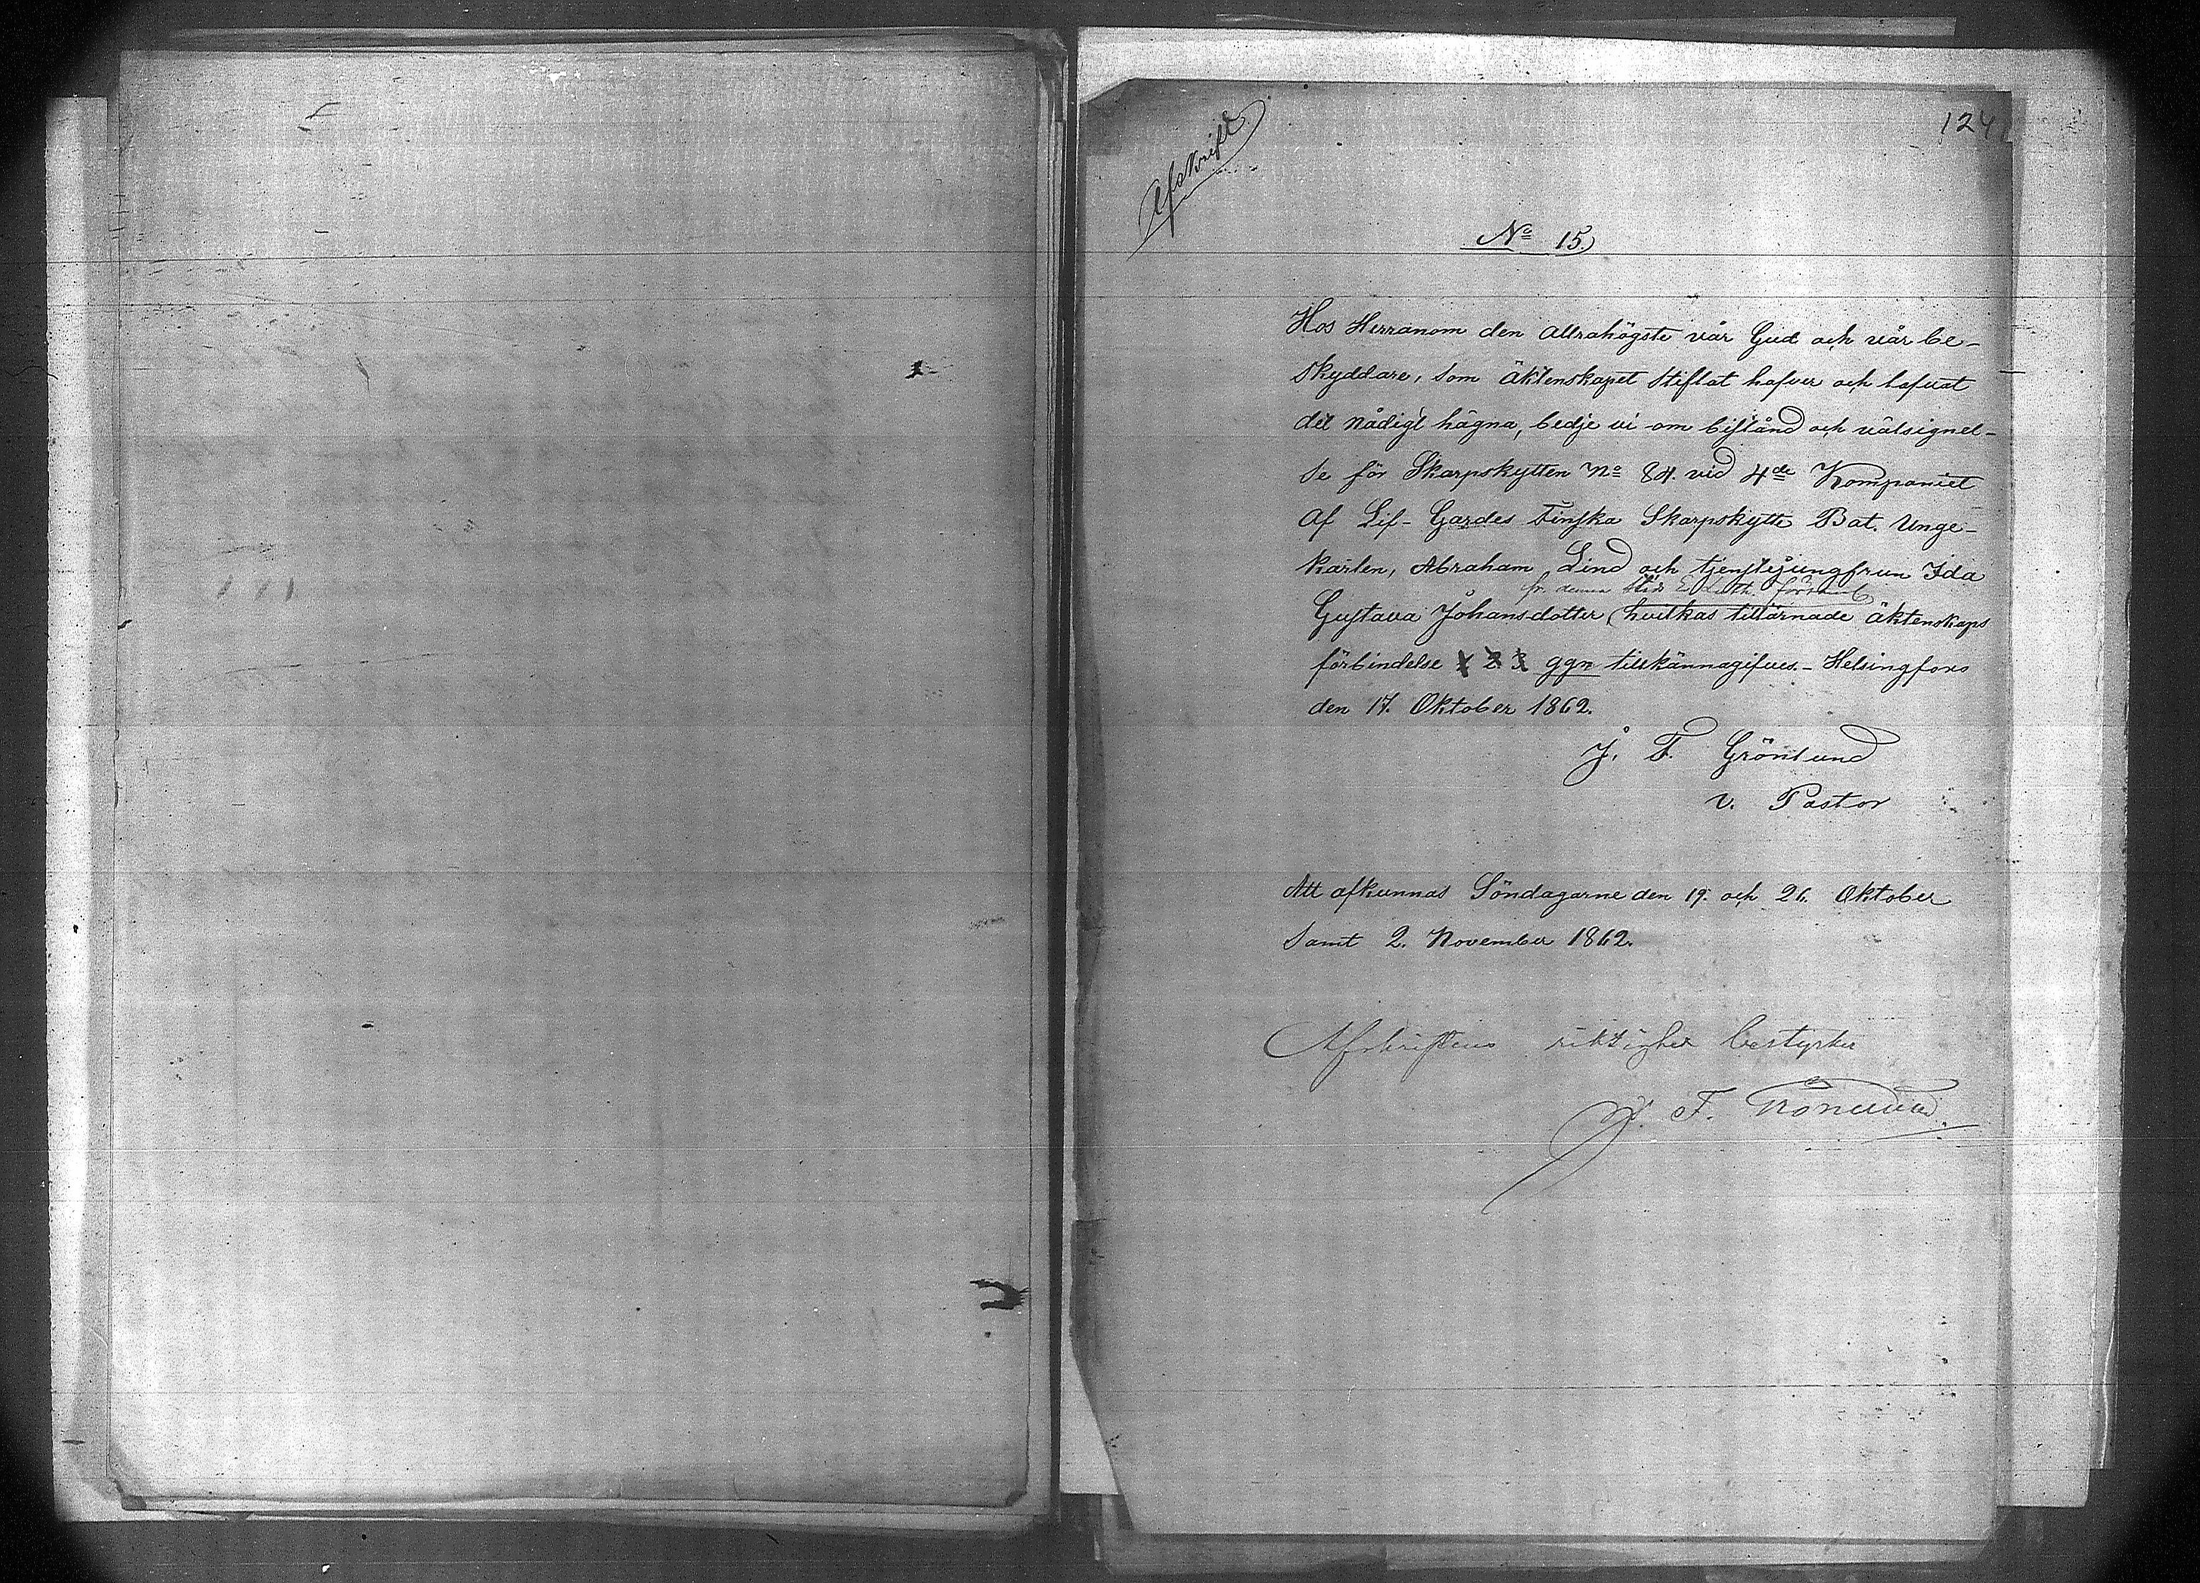 124
Afskrift
No 15.
Hos Herranom den Allrahögste vår Gud och vår be-
skyddare, som äktenskapet stiftat hafver och lofvat
det nådigt hägna, bedje vi om bistånd och välsignel-
se för Skarpskytten No 84. vid 4de Kompaniet
af Lif-Gardes Finska Skarpskytte Bat. Unge-
karlen, Abraham Lind och tjenstejungfrun Ida
fr. denna stads
Gustava Johansdotter, hvilkas tillärnade äktenskaps
förbindelse 1 2 3 ggn tillkännagifves. - Helsingfors
den 17. Oktober 1862.
J. F. Grönlund
v. Pastor
Att afkunnas Söndagarne den 19. och 26. Oktober
samt 2. November 1862.
Afskriftens riktighet bestyrker
J. F. Grönlund